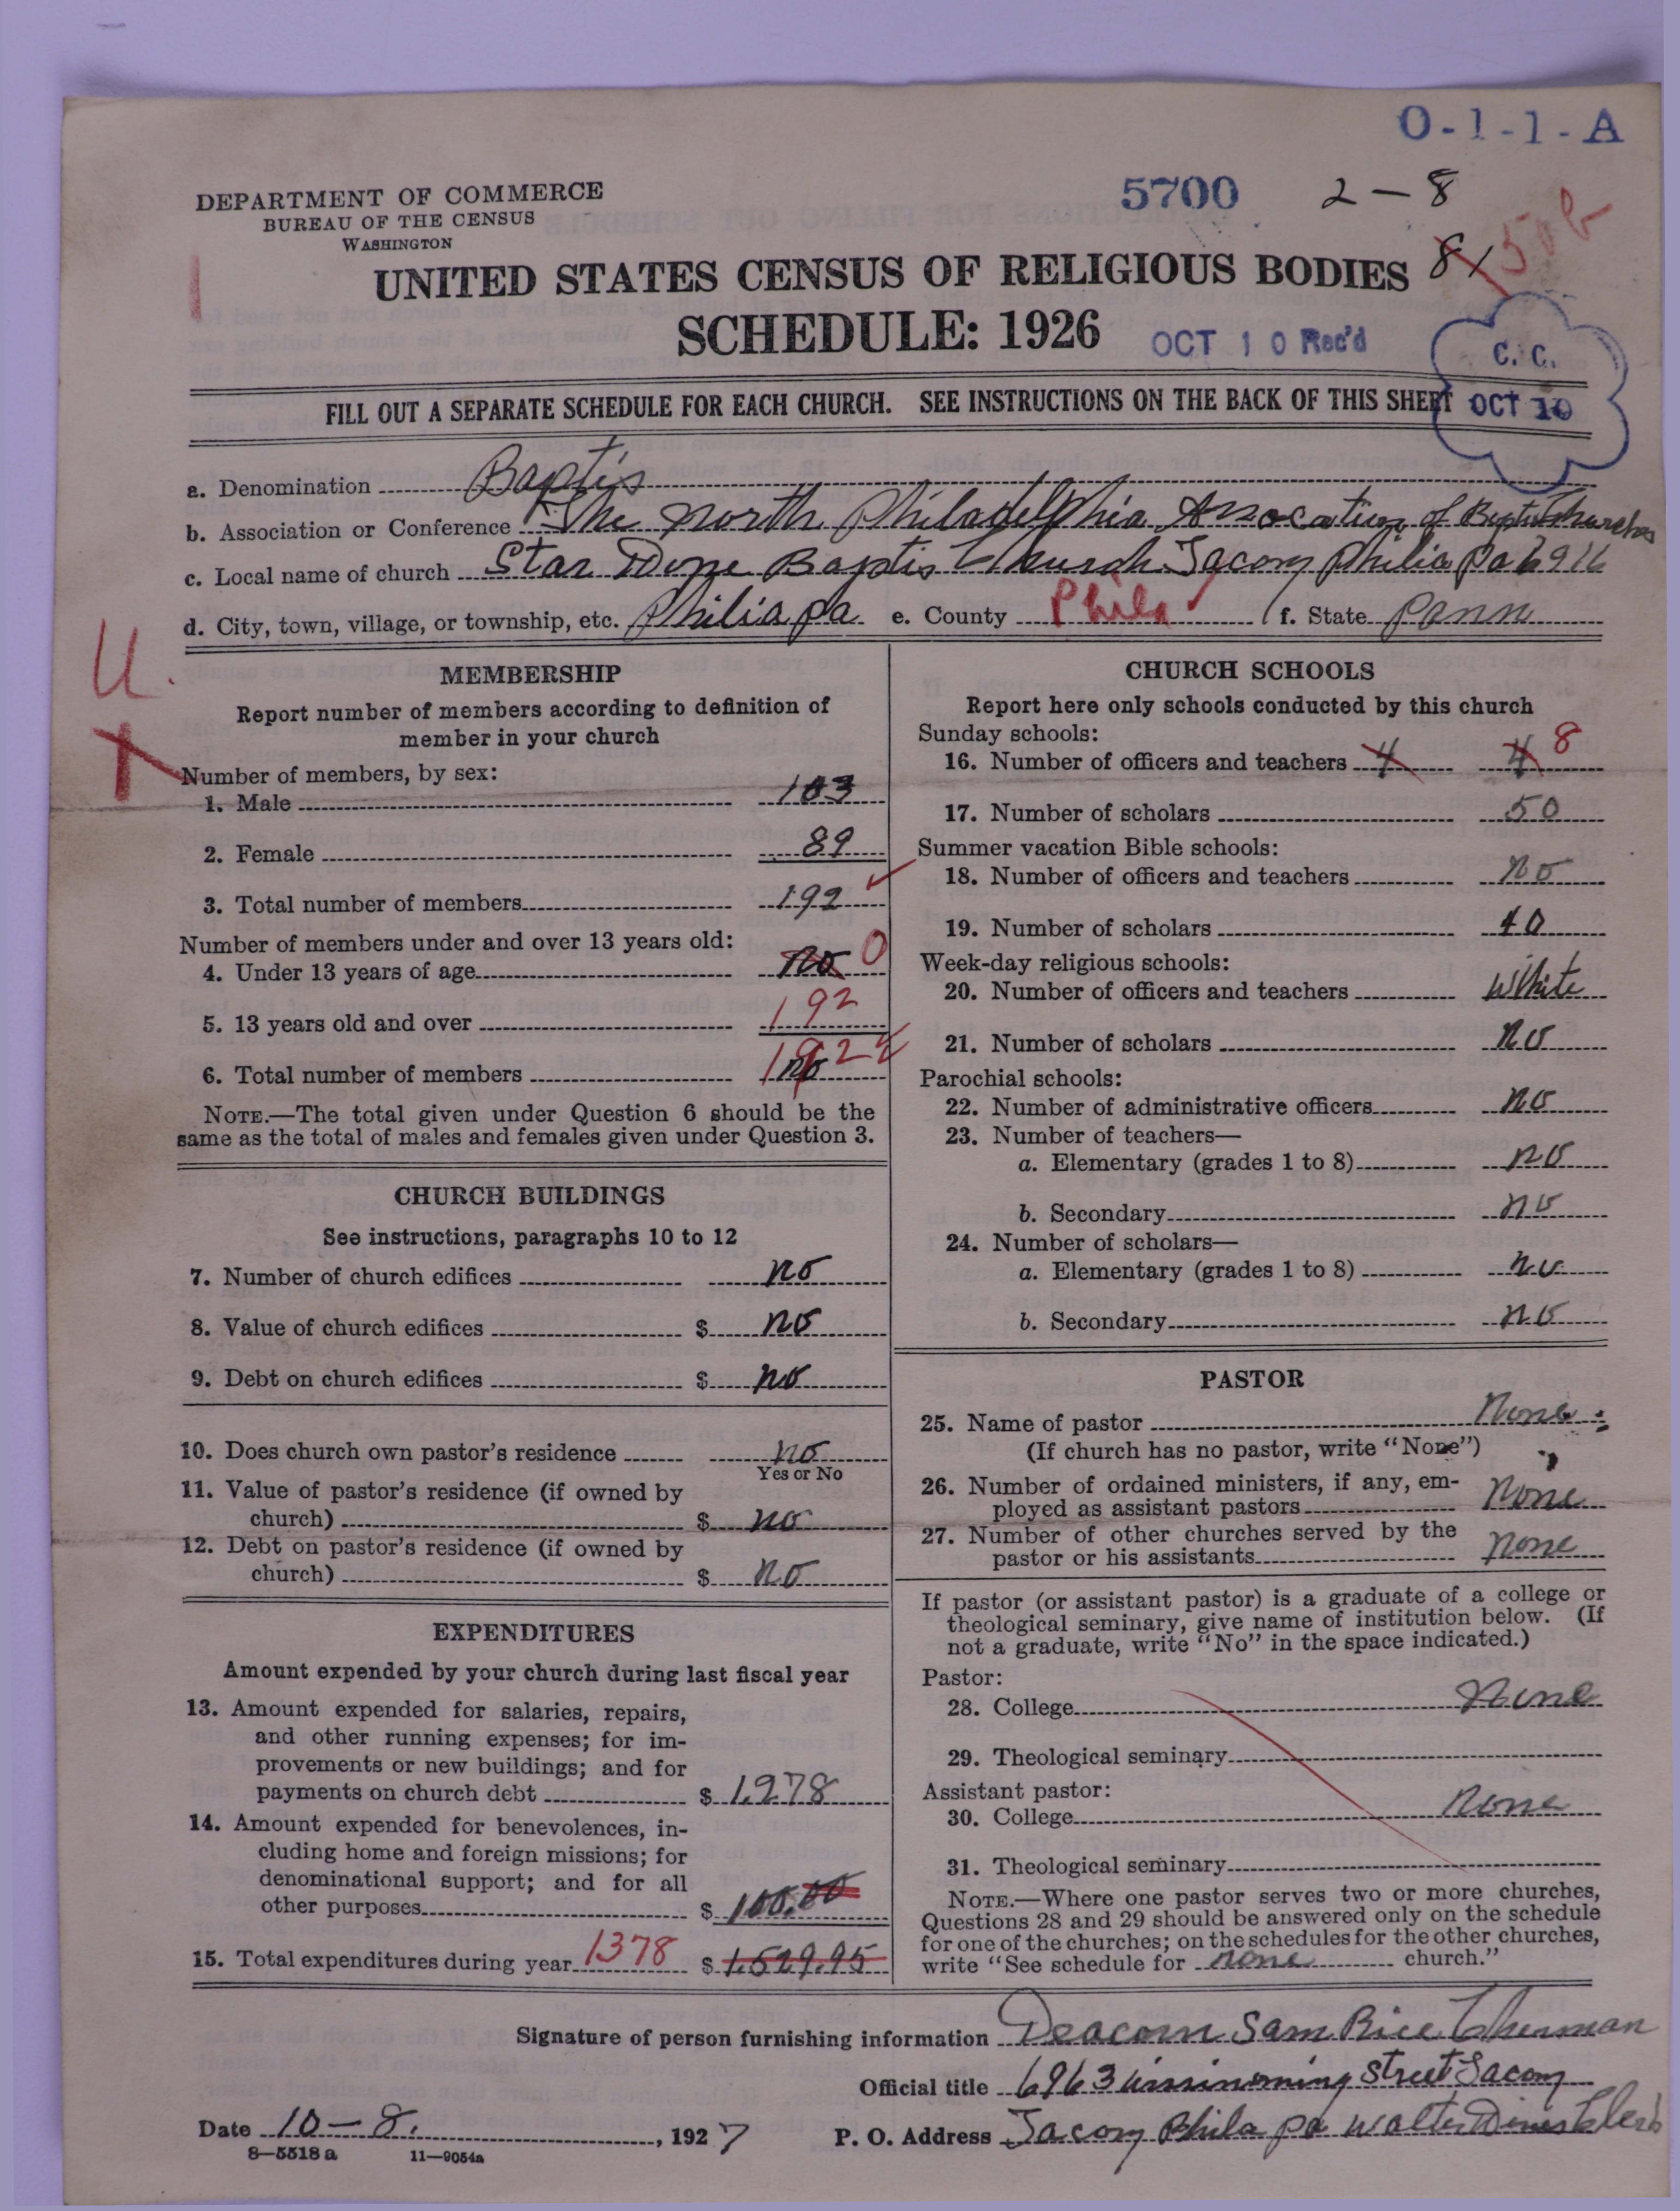 O-1-1-A
DEPARTMENT OF COMMERCE
BUREAU OF THE CENSUS
WASHINGTON
5700 2-8
UNITED STATES CENSUS OF RELIGIOUS BODIES 8
SCHEDULE: 1926
OCT 10 Rec'd
C. C.
OCT 10
FILL OUT A SEPARATE SCHEDULE FOR EACH CHURCH. SEE INSTRUCTIONS ON THE BACK OF THIS SHEET
a. Denomination Baptis
b. Association or Conference The North Philadelphia Assocation of Baptis Churches
c. Local name of church Star Baptis Church Tacony Philia Pa 6916
d. City, town, village, or township, etc. Philia pa e. County Phila f. State Penn
U.
MEMBERSHIP
Report number of members according to definition of
member in your church
Number of members, by sex:
1. Male 103
2. Female 89
3. Total number of members 192
Number of members under and over 13 years old:
4. Under 13 years of age no 0
5. 13 years old and over 192
6. Total number of members no 192
NOTE.—The total given under Question 6 should be the
same as the total of males and females given under Question 3.
CHURCH BUILDINGS
See instructions, paragraphs 10 to 12
7. Number of church edifices no
8. Value of church edifices $ no
9. Debt on church edifices $ no
10. Does church own pastor's residence no
Yes or No
11. Value of pastor's residence (if owned by
church) $ no
12. Debt on pastor's residence (if owned by
church) $ no
EXPENDITURES
Amount expended by your church during last fiscal year
13. Amount expended for salaries, repairs,
and other running expenses; for im-
provements or new buildings; and for
payments on church debt $ 1,278
14. Amount expended for benevolences, in-
cluding home and foreign missions; for
denominational support; and for all
other purposes $ 100.00
15. Total expenditures during year 1378 $ 1,529.95
CHURCH SCHOOLS
Report here only schools conducted by this church
Sunday schools:
16. Number of officers and teachers 4 4 8
17. Number of scholars 50
Summer vacation Bible schools:
18. Number of officers and teachers no
19. Number of scholars 40
Week-day religious schools:
20. Number of officers and teachers White
21. Number of scholars no
Parochial schools:
22. Number of administrative officers no
23. Number of teachers—
a. Elementary (grades 1 to 8) no
b. Secondary no
24. Number of scholars—
a. Elementary (grades 1 to 8) no
b. Secondary no
PASTOR
25. Name of pastor None
(If church has no pastor, write "None")
26. Number of ordained ministers, if any, em-
ployed as assistant pastors None
27. Number of other churches served by the
pastor or his assistants none
If pastor (or assistant pastor) is a graduate of a college or
theological seminary, give name of institution below. (If
not a graduate, write "No" in the space indicated.)
Pastor:
28. College None
29. Theological seminary
Assistant pastor:
30. College None
31. Theological seminary
NOTE.—Where one pastor serves two or more churches,
Questions 28 and 29 should be answered only on the schedule
for one of the churches; on the schedules for the other churches,
write "See schedule for none church."
Signature of person furnishing information Deacorn Sam Rice Cherman
Official title 6963 street Tacony
Date 10-8. , 1927 P. O. Address Tacony Phila pa Walter Clerk
8—5518 a 11—9054a